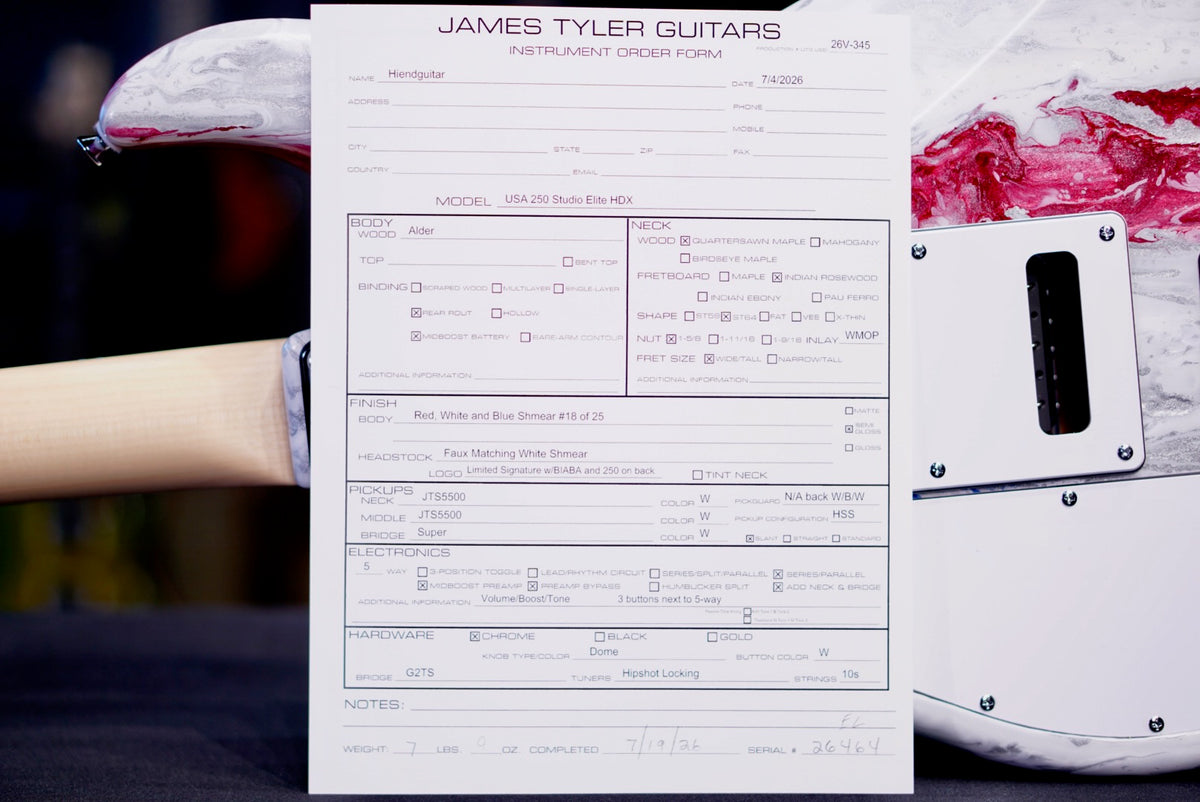 JAMES TYLER GUITARS
INSTRUMENT ORDER FORM
PRODUCTION # LTG USE 26V-345
NAME Hiendguitar DATE 7/4/2026
ADDRESS PHONE
MOBILE
CITY STATE ZIP FAX
COUNTRY EMAIL
MODEL USA 250 Studio Elite HDX
BODY
WOOD Alder
TOP ☐ BENT TOP
BINDING ☐ SCRAPED WOOD ☐ MULTILAYER ☐ SINGLE-LAYER
☒ REAR ROUT ☐ HOLLOW
☒ MIDBOOST BATTERY ☐ BARE-ARM CONTOUR
ADDITIONAL INFORMATION
NECK
WOOD ☒ QUARTERSAWN MAPLE ☐ MAHOGANY
☐ BIRDSEYE MAPLE
FRETBOARD ☐ MAPLE ☒ INDIAN ROSEWOOD
☐ INDIAN EBONY ☐ PAU FERRO
SHAPE ☐ ST59 ☒ ST64 ☐ FAT ☐ VEE ☐ X-THIN
NUT ☒ 1-5/8 ☐ 1-11/16 ☐ INLAY WMOP
FRET SIZE ☒ WIDE/TALL ☐ NARROW/TALL
ADDITIONAL INFORMATION
FINISH
BODY Red, White and Blue Shmear #18 of 25
☐ MATTE
☒ SEMI GLOSS
☐ GLOSS
HEADSTOCK Faux Matching White Shmear
LOGO Limited Signature w/BIABA and 250 on back ☐ TINT NECK
PICKUPS
NECK JTS5500 COLOR W PICKGUARD N/A back W/B/W
MIDDLE JTS5500 COLOR W PICKUP CONFIGURATION HSS
BRIDGE Super COLOR W ☒ SLANT ☐ STRAIGHT ☐ STANDARD
ELECTRONICS
5 WAY ☐ 3-POSITION TOGGLE ☐ LEAD/RHYTHM CIRCUIT ☐ SERIES/SPLIT/PARALLEL ☒ SERIES/PARALLEL
☒ MIDBOOST PREAMP ☒ PREAMP BYPASS ☐ HUMBUCKER SPLIT ☒ ADD NECK & BRIDGE
ADDITIONAL INFORMATION Volume/Boost/Tone 3 buttons next to 5-way
HARDWARE ☒ CHROME ☐ BLACK ☐ GOLD
KNOB TYPE/COLOR Dome BUTTON COLOR W
BRIDGE G2TS TUNERS Hipshot Locking STRINGS 10s
NOTES:
WEIGHT: 7 LBS. 9 OZ. COMPLETED 7/19/26 SERIAL # 26464